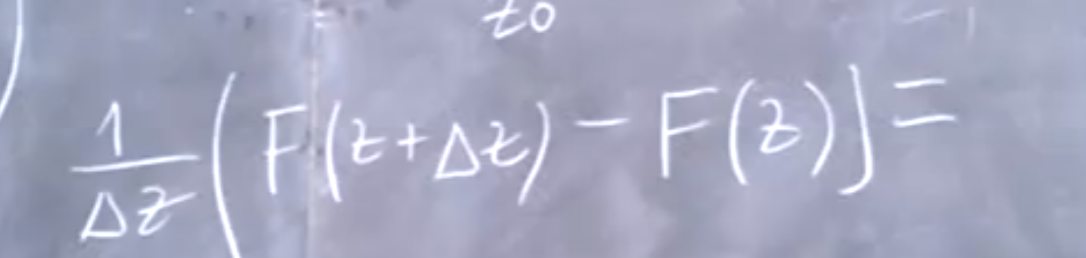 z0
1/Δz (F(z+Δz) − F(z)] =